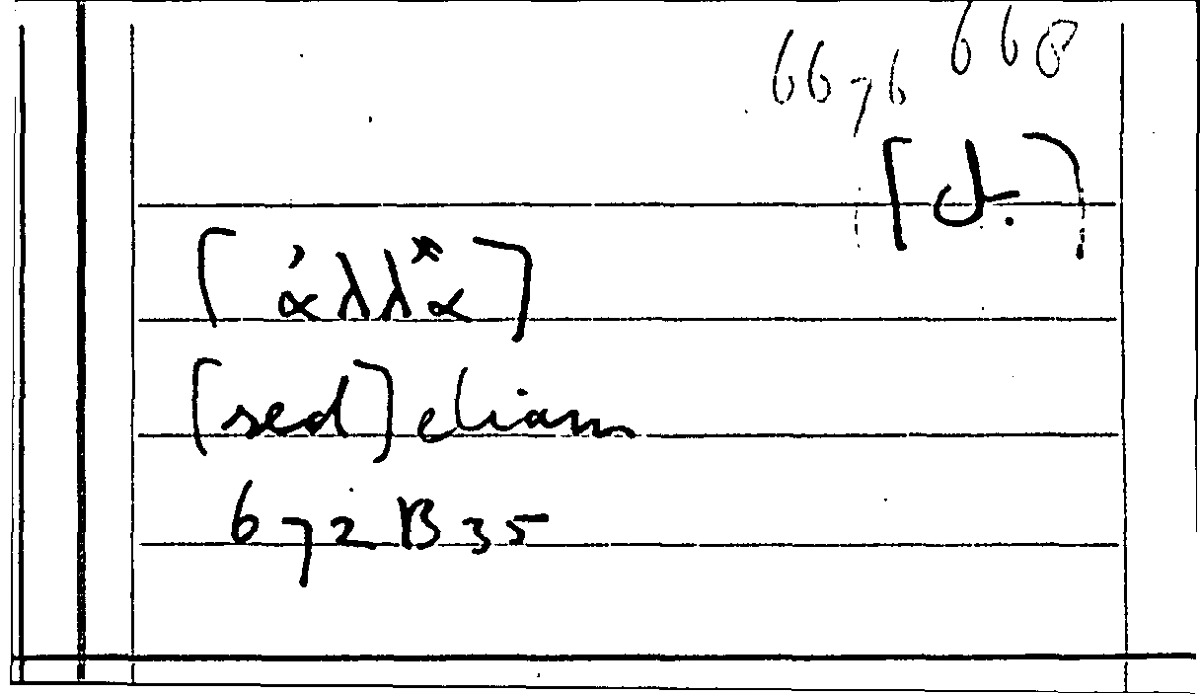 6676 668
[d.]
[ἀλλὰ]
[sed] etiam
672 B 35